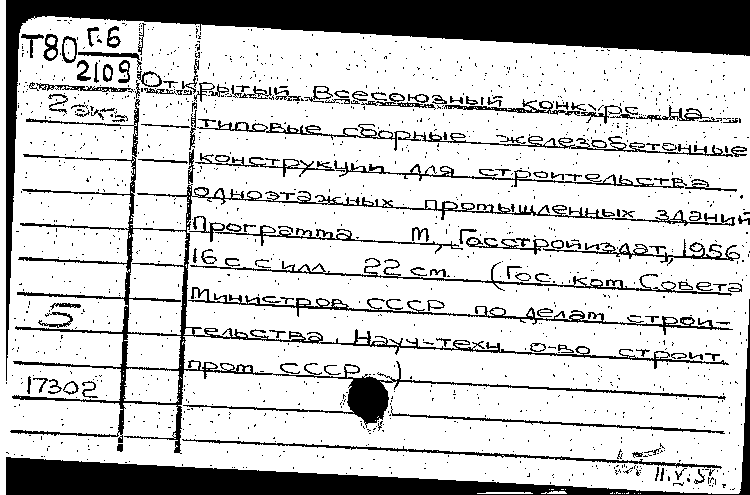 Т80 Г.6
2109
Открытый Всесоюзный конкурс на
2 экз
типовые сборные железобетонные
конструкции для строительства
одноэтажных промышленных зданий
Программа М, Госстройиздат, 1956
16 с. с илл 22 см (Гос. ком. Совета
Министров СССР по делам строи-
5
тельства. Науч-техн. о-во строит.
пром. СССР).
17302
11.V.56.